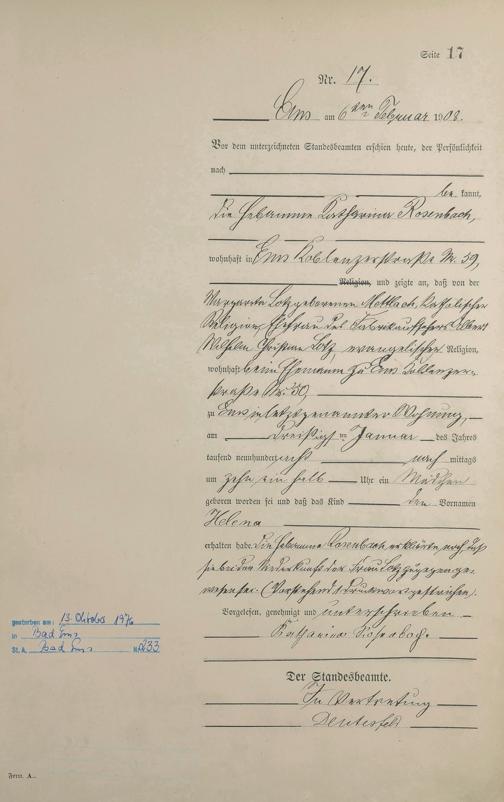 Seite 17
Nr. 17.
Ems am 6ten Februar 1908.
Vor dem unterzeichneten Standesbeamten erschien heute, der Persönlichkeit
nach
be kannt,
die Hebamme Katharina Rosenbach,
wohnhaft in Ems Koblenzerstraße Nr. 39,
Religion, und zeigte an, daß von der
Margareta Lotz geborenen Mottbach, Katholischer
Religion, Ehefrau des Fabrikaufsehers Albert
Wilhelm Christian Lotz evangelischer Religion,
wohnhaft beim Ehemann zu Ems Koblenzer-
straße Nr. 30,
zu Ems in letztgenannter Wohnung,
am dreißigsten Januar des Jahres
tausend neunhundert acht nach mittags
um zehn ein halb Uhr ein Mädchen
geboren worden sei und daß das Kind den Vornamen
Helena
erhalten habe. Die Hebamme Rosenbach erklärte noch daß
sie bei der Niederkunft der Frau Lotz zugegen ge-
wesen sei. (Vorstehend 1 Druckwort gestrichen).
Vorgelesen, genehmigt und unterschrieben
Katharina Rosenbach
Der Standesbeamte.
In Vertretung
gestorben am: 13. Oktober 1976
in Bad Ems
St. A. Bad Ems Nr. 233
Form. A.